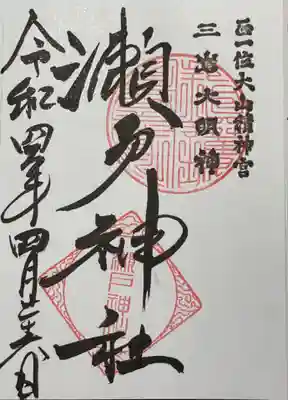 正一位大山積神宮
三嶌大明神
瀨戸神社
令和四年四月日